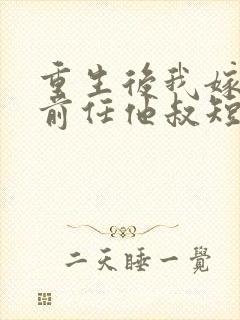 重生後我嫁
前任他叔短
二天睡一覺